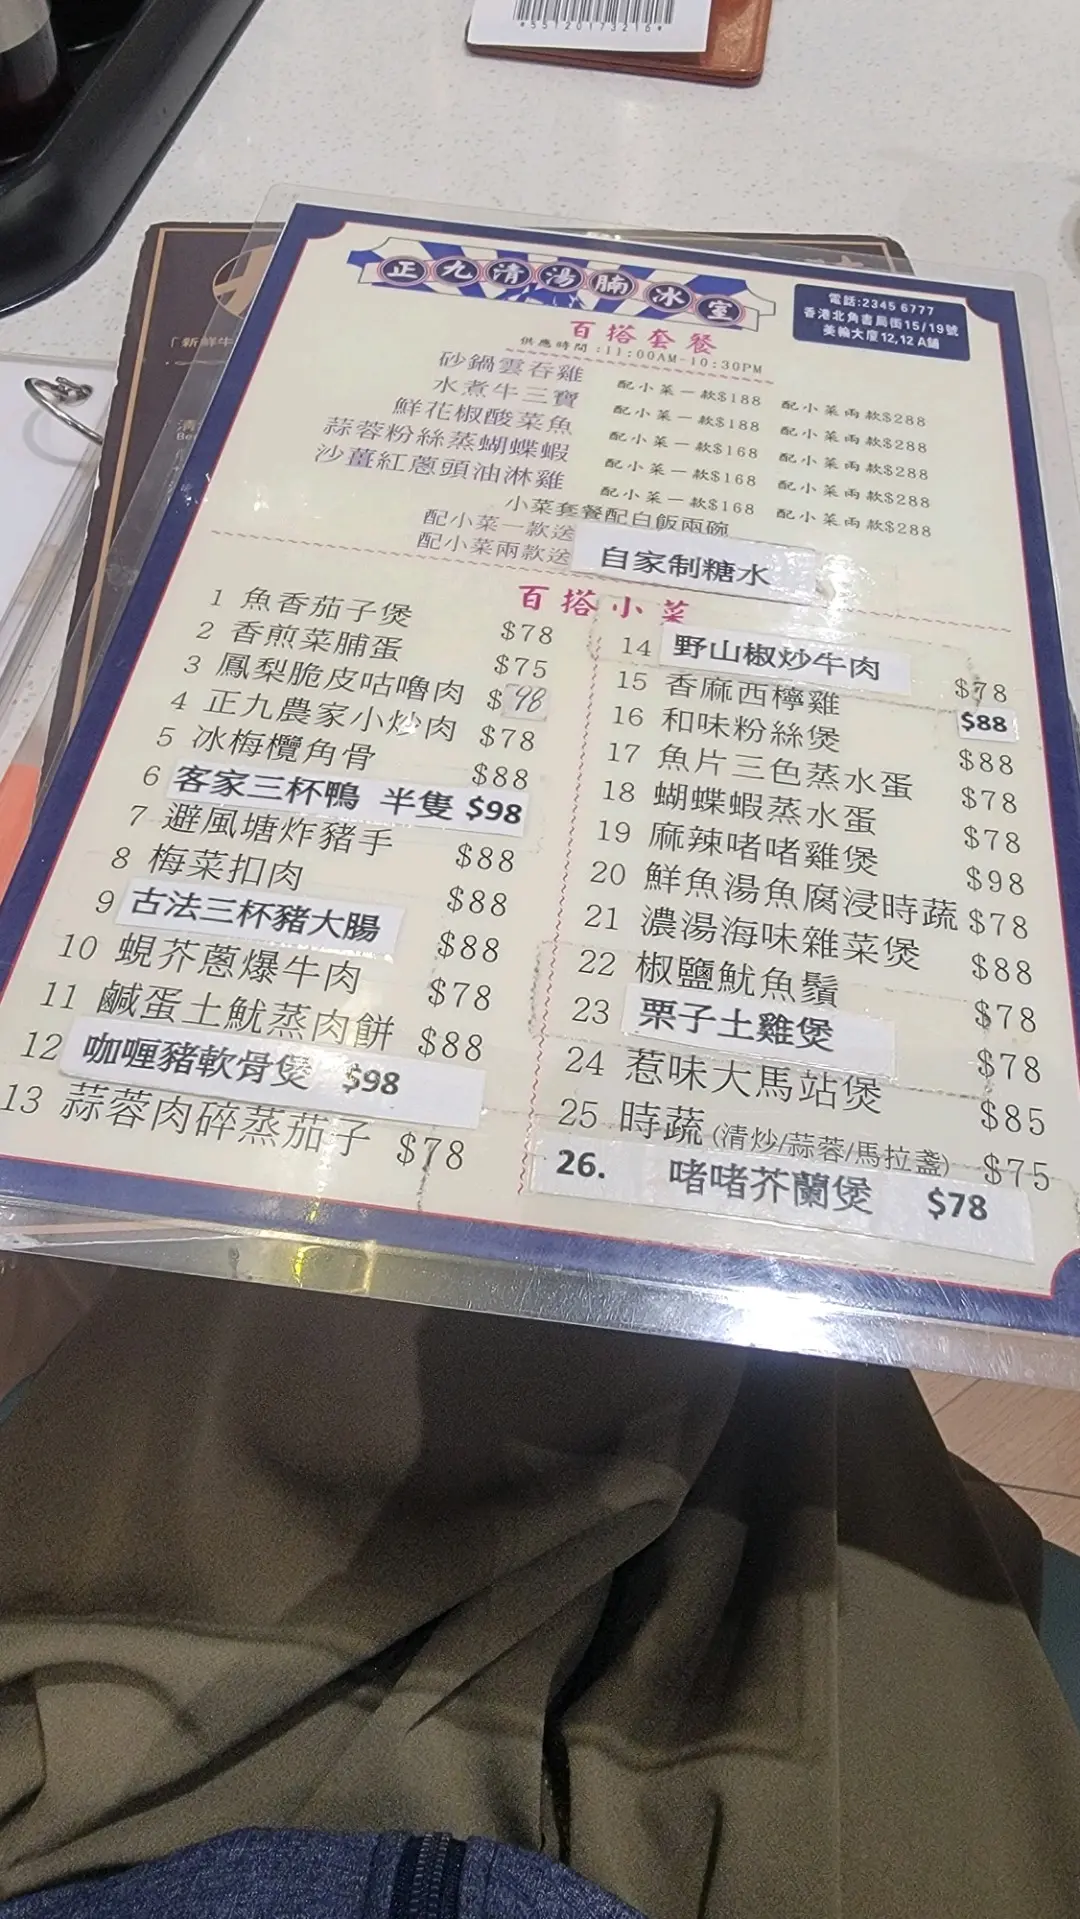 *55120173216*
正九清湯腩冰室
電話:2345 6777
香港北角書局街15/19號
美輪大廈12,12A舖
百搭套餐
供應時間:11:00AM-10:30PM
砂鍋雲吞雞 配小菜一款$188 配小菜兩款$288
水煮牛三寶 配小菜一款$188 配小菜兩款$288
鮮花椒酸菜魚 配小菜一款$168 配小菜兩款$288
蒜蓉粉絲蒸蝴蝶蝦 配小菜一款$168 配小菜兩款$288
沙薑紅蔥頭油淋雞 配小菜一款$168 配小菜兩款$288
小菜套餐配白飯兩碗
配小菜一款送
配小菜兩款送
自家制糖水
百搭小菜
1 魚香茄子煲 $78
2 香煎菜脯蛋 $75
3 鳳梨脆皮咕嚕肉 $98
4 正九農家小炒肉 $78
5 冰梅欖角骨 $88
6 客家三杯鴨 半隻 $98
7 避風塘炸豬手 $88
8 梅菜扣肉 $88
9 古法三杯豬大腸 $88
10 蜆芥蔥爆牛肉 $78
11 鹹蛋土魷蒸肉餅 $88
12 咖喱豬軟骨煲 $98
13 蒜蓉肉碎蒸茄子 $78
14 野山椒炒牛肉 $78
15 香麻西檸雞 $88
16 和味粉絲煲 $88
17 魚片三色蒸水蛋 $78
18 蝴蝶蝦蒸水蛋 $78
19 麻辣啫啫雞煲 $98
20 鮮魚湯魚腐浸時蔬 $78
21 濃湯海味雜菜煲 $88
22 椒鹽魷魚鬚 $78
23 栗子土雞煲 $78
24 惹味大馬站煲 $85
25 時蔬 (清炒/蒜蓉/馬拉盞) $75
26. 啫啫芥蘭煲 $78
「新鮮牛